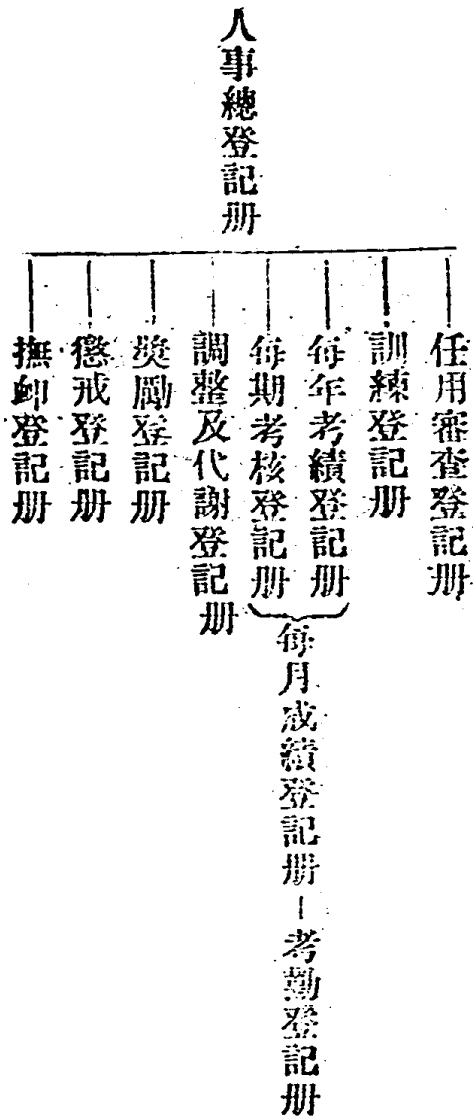 人事總登記册
任用審查登記册
訓練登記册
每年考績登記册
每期考核登記册
每月成績登記册－考勤登記册
調整及代謝登記册
奬勵登記册
懲戒登記册
撫卹登記册